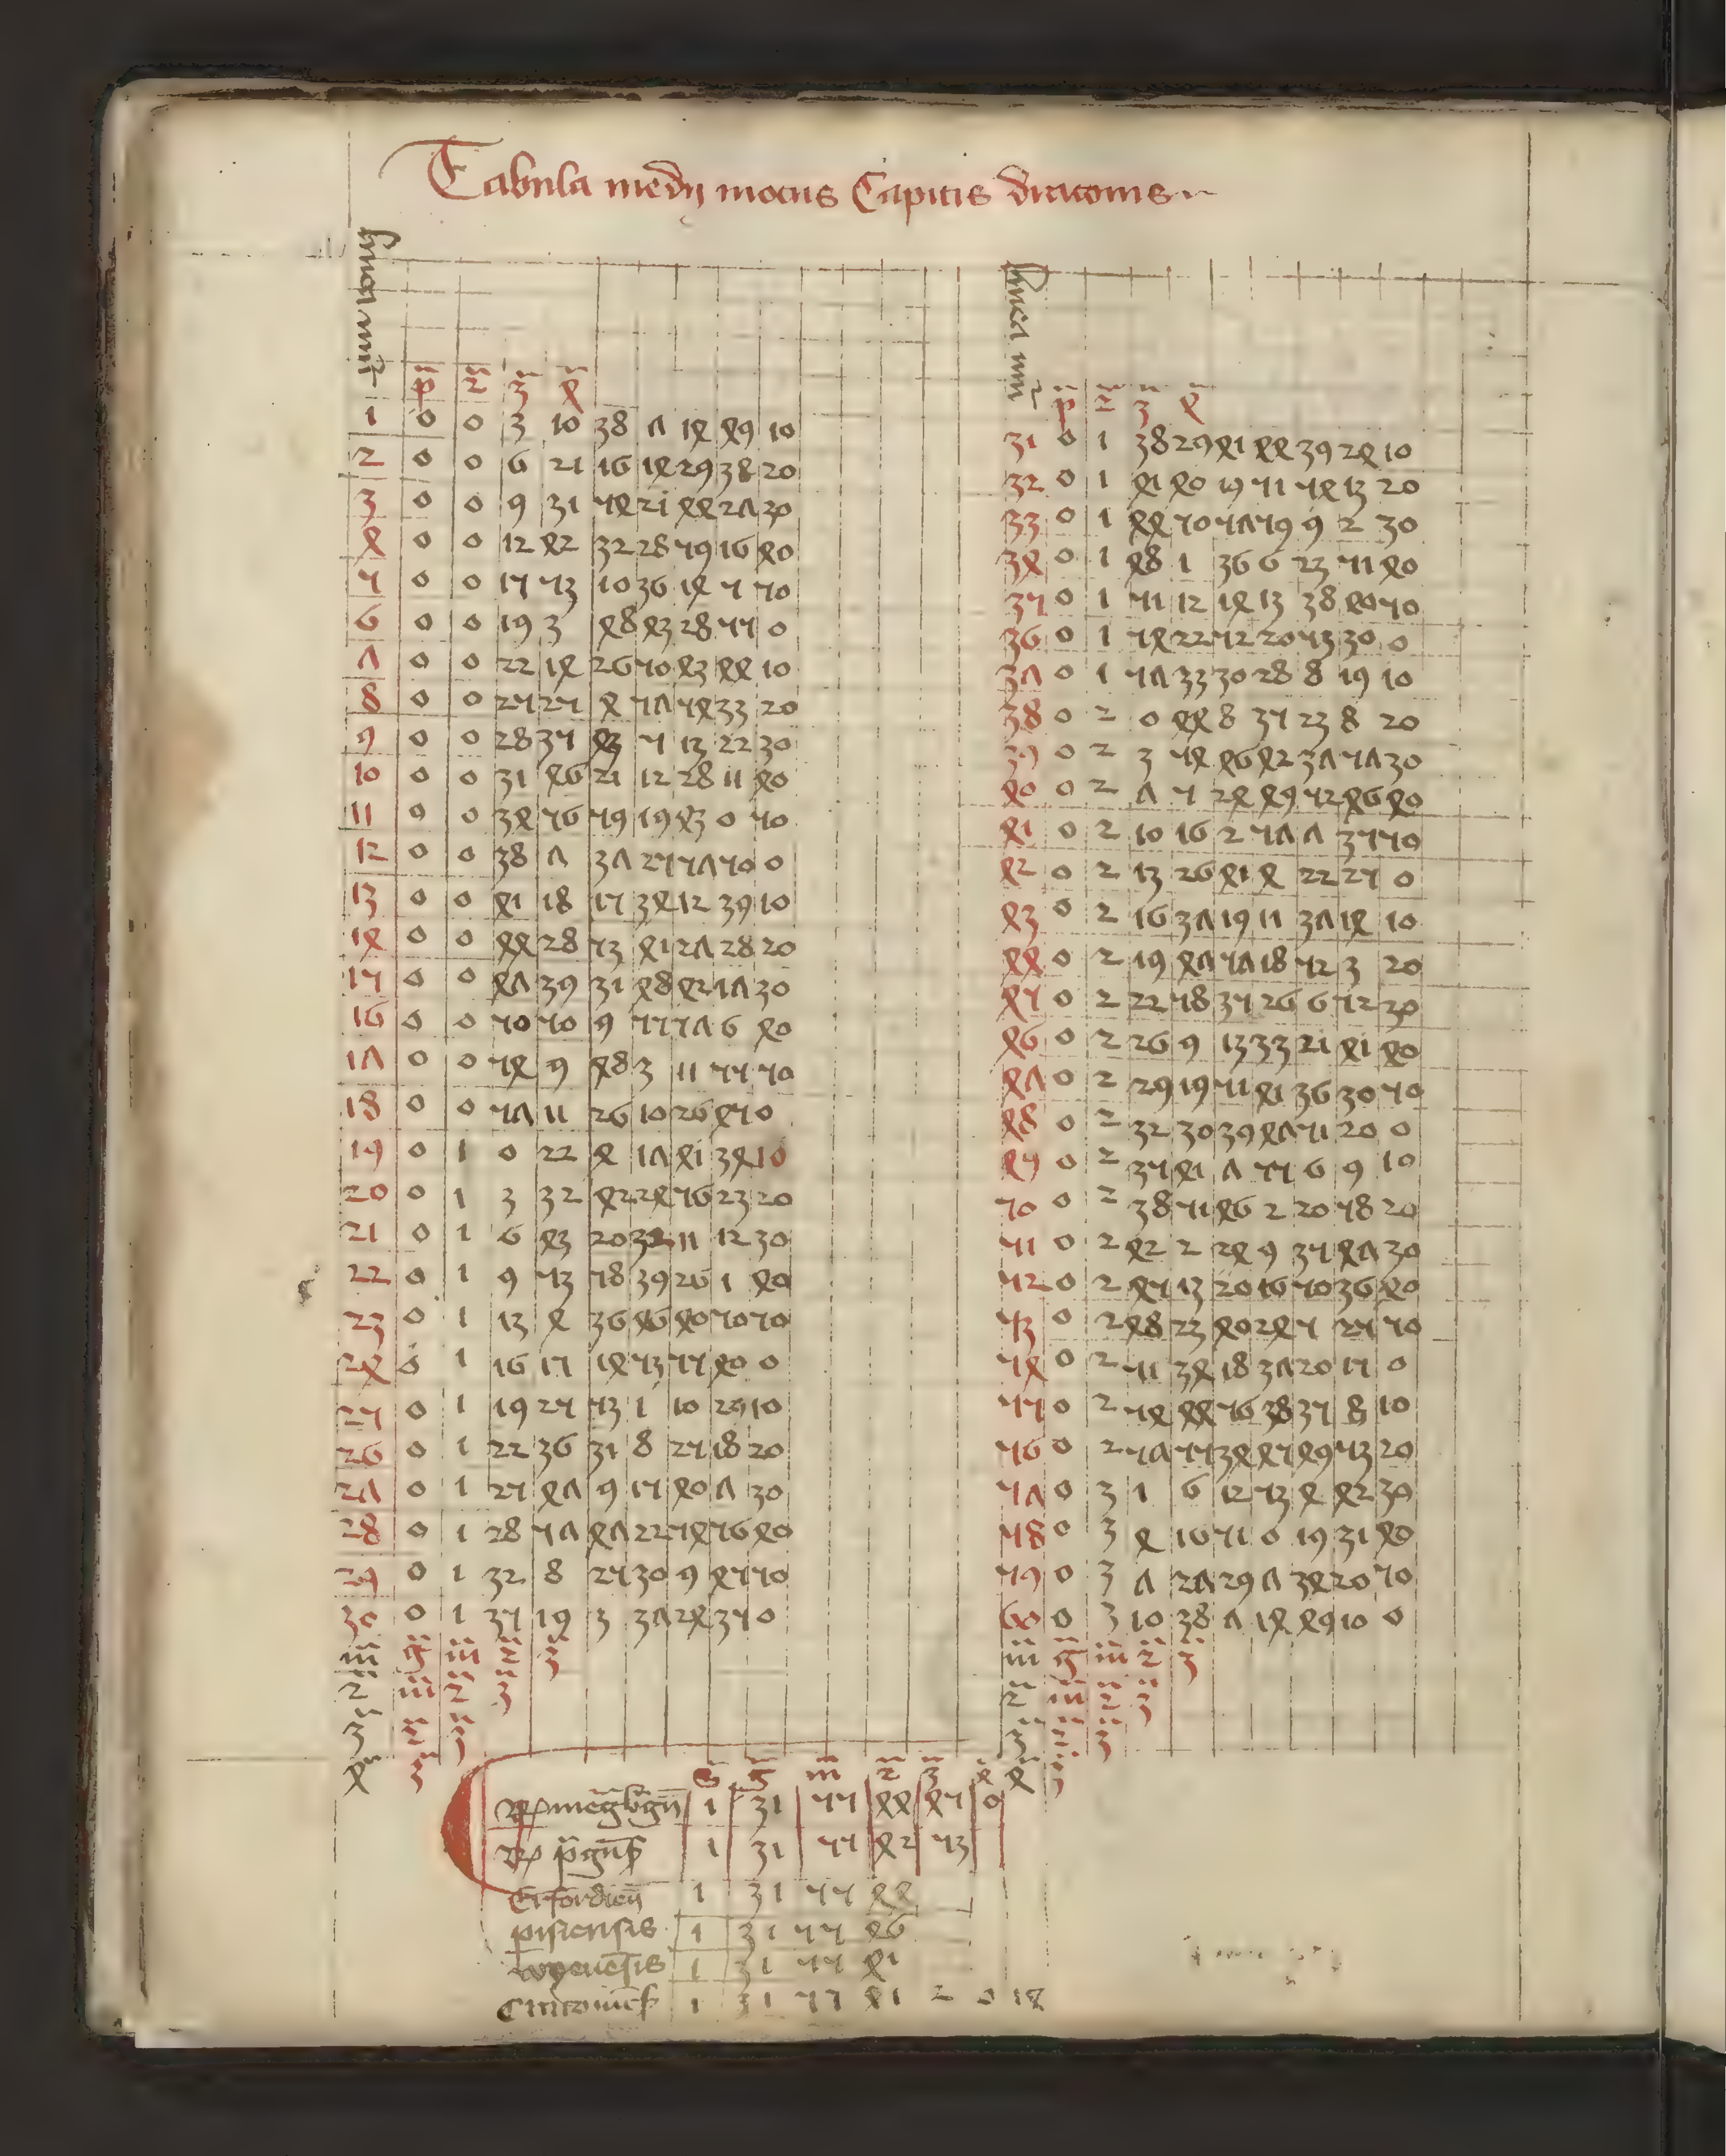 Tabula medij motus Capitis draconis
linea numeri
p̄ 2̄ 3̄ 4̄
1 0 0 3 10 38 7 14 49 10
2 0 0 6 21 16 14 29 38 20
3 0 0 9 31 54 21 44 27 30
4 0 0 12 42 32 28 59 16 40
5 0 0 15 53 10 36 14 5 50
6 0 0 19 3 48 43 28 55 0
7 0 0 22 14 26 50 43 44 10
8 0 0 25 25 4 57 54 33 20
9 0 0 28 35 43 5 13 22 30
10 0 0 31 46 21 12 28 11 40
11 0 0 34 56 59 19 43 0 50
12 0 0 38 7 37 25 57 50 0
13 0 0 41 18 15 34 12 39 10
14 0 0 44 28 53 41 27 28 20
15 0 0 47 39 31 48 42 17 30
16 0 0 50 50 9 55 57 6 40
17 0 0 54 9 48 3 11 55 50
18 0 0 57 11 26 10 26 45 0
19 0 1 0 22 4 17 41 34 10
20 0 1 3 32 42 24 56 23 20
21 0 1 6 43 20 32 11 12 30
22 0 1 9 53 58 39 26 1 40
23 0 1 13 4 36 46 40 50 50
24 0 1 16 15 14 53 55 40 0
25 0 1 19 25 53 1 10 29 10
26 0 1 22 36 31 8 25 18 20
27 0 1 25 47 9 15 40 7 30
28 0 1 28 57 47 22 54 56 40
29 0 1 32 8 25 30 9 45 50
30 0 1 35 19 3 37 24 35 0
m̄ ḡ m̄ 2̄ 3̄
2̄ m̄ 2̄ 3̄
3̄ 2̄ 3̄
4̄ 3̄
linea num
p̄ 2̄ 3̄ 4̄
31 0 1 38 29 41 44 39 24 10
32 0 1 41 40 19 51 54 13 20
33 0 1 44 50 57 59 9 2 30
34 0 1 48 1 36 6 23 51 40
35 0 1 51 12 14 13 38 40 50
36 0 1 54 22 52 20 53 30 0
37 0 1 57 33 30 28 8 19 10
38 0 2 0 44 8 35 23 8 20
39 0 2 3 54 46 42 37 57 30
40 0 2 7 5 24 49 52 46 40
41 0 2 10 16 2 57 7 35 50
42 0 2 13 26 41 4 22 25 0
43 0 2 16 37 19 11 37 14 10
44 0 2 19 47 57 18 52 3 20
45 0 2 22 58 35 26 6 52 30
46 0 2 26 9 13 33 21 41 40
47 0 2 29 19 51 41 36 30 50
48 0 2 32 30 39 47 51 20 0
49 0 2 35 41 7 55 6 9 10
50 0 2 38 51 46 2 20 58 20
51 0 2 42 2 24 9 35 47 30
52 0 2 45 13 20 16 50 36 40
53 0 2 48 23 40 24 5 25 50
54 0 2 51 34 18 37 20 15 0
55 0 2 54 44 56 38 35 8 10
56 0 2 57 55 34 45 49 53 20
57 0 3 1 6 12 53 4 42 30
58 0 3 4 16 51 0 19 31 40
59 0 3 7 27 29 7 34 20 50
60 0 3 10 38 7 14 49 10 0
m̄ ḡ m̄ 2̄ 3̄
2̄ m̄ 2̄ 3̄
3̄ 2̄ 3̄
4̄ 3̄
S̄ ḡ m̄ 2̄ 3̄ 4̄
1 31 55 44 45 0
1 31 55 42 53
Erfordien̄ 1 31 55 44
pisiensis 1 31 55 46
wyenēsis 1 31 55 41
1 31 55 41 2 0 18